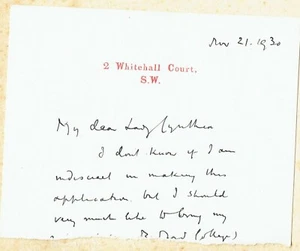 Nov 21. 1930
2 Whitehall Court,
S.W.
My dear Lady Cynthia
I dont know if I am
indiscreet in making this
application but I should
very much like to bring my